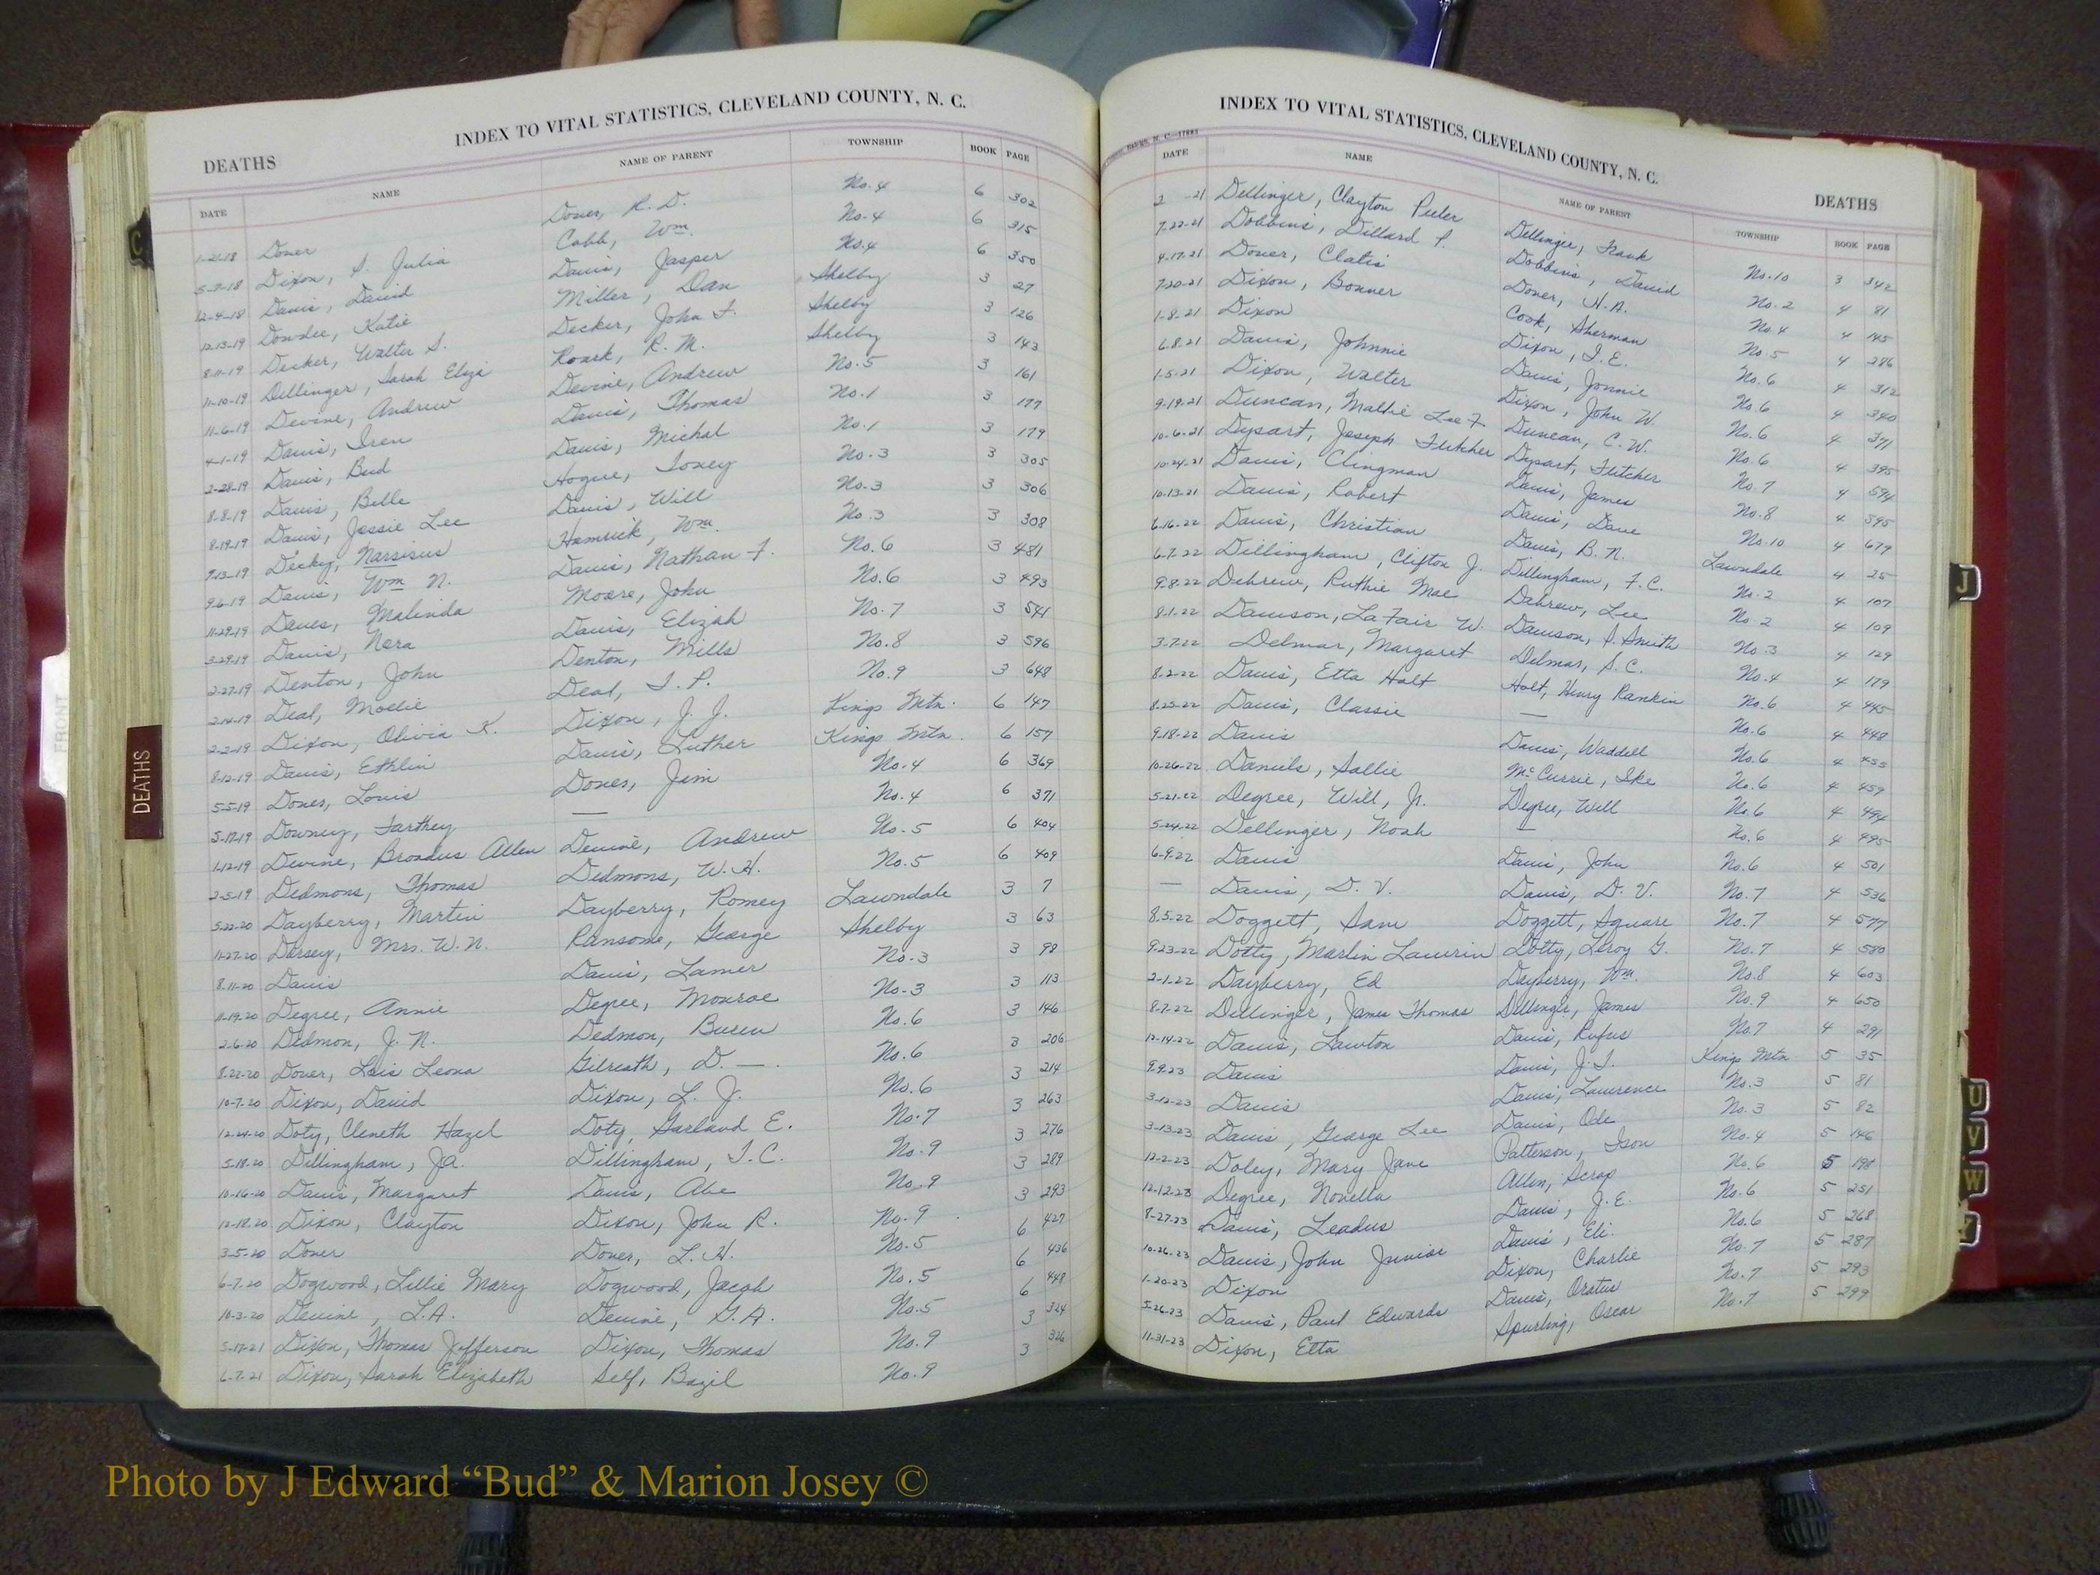 INDEX TO VITAL STATISTICS, CLEVELAND COUNTY, N. C.
DEATHS
DATE NAME NAME OF PARENT TOWNSHIP BOOK PAGE
1-21-18 Dover Dover, R. D. No. 4 6 302
5-7-18 Dixon, S. Julia Cobb, Wm. No. 4 6 315
12-4-18 Davis, David Davis, Jasper No. 4 6 350
12-13-19 Dowdee, Katie Miller, Dan Shelby 3 27
8-11-19 Decker, Walter S. Decker, John F. Shelby 3 126
11-10-19 Dellinger, Sarah Eliza Roark, R. M. Shelby 3 143
11-6-19 Devine, Andrew Devine, Andrew No. 5 3 161
4-1-19 Davis, Iren Davis, Thomas No. 1 3 177
2-28-19 Davis, Bud Davis, Michal No. 1 3 179
8-8-19 Davis, Belle Hogue, Toney No. 3 3 305
8-19-19 Davis, Jessie Lee Davis, Will No. 3 3 306
9-13-19 Decky, Narsisus Hamrick, Wm. No. 3 3 308
9-6-19 Davis, Wm N. Davis, Nathan F. No. 6 3 481
11-29-19 Daves, Malinda Moore, John No. 6 3 493
3-29-19 Davis, Nera Davis, Elizah No. 7 3 541
2-27-19 Denton, John Denton, Mills No. 8 3 596
2-14-19 Deal, Mollie Deal, T. P. No. 9 3 648
2-2-19 Dixon, Olivia K. Dixon, J. J. Kings Mtn. 6 147
8-12-19 Davis, Ethlin Davis, Luther Kings Mtn. 6 157
5-5-19 Dover, Louis Dover, Jim No. 4 6 369
5-17-19 Downey, Farthey — No. 4 6 371
1-12-19 Devine, Broadus Allen Devine, Andrew No. 5 6 404
2-5-19 Dedmons, Thomas Dedmons, W. H. No. 5 6 409
5-22-20 Dayberry, Martin Dayberry, Romey Lawndale 3 7
11-27-20 Dorsey, Mrs. W. N. Ransome, George Shelby 3 63
8-11-20 Davis Davis, Lamer No. 3 3 98
11-19-20 Degree, Annie Degree, Monroe No. 3 3 113
2-6-20 Dedmon, J. N. Dedmon, Buren No. 6 3 146
8-22-20 Dover, Lois Leona Gilreath, D. —. No. 6 3 206
10-7-20 Dixon, David Dixon, L. J. No. 6 3 214
12-24-20 Doty, Cleneth Hazel Doty, Garland E. No. 7 3 263
5-18-20 Dillingham, Ja. Dillingham, T. C. No. 9 3 276
10-16-20 Davis, Margaret Davis, Abe No. 9 3 289
12-18-20 Dixon, Clayton Dixon, John R. No. 9 3 293
3-5-20 Dover Dover, L. H. No. 5 6 427
6-7-20 Dogwood, Lillie Mary Dogwood, Jacob No. 5 6 436
10-3-20 Devine, L. A. Devine, G. A. No. 5 6 448
5-17-21 Dixon, Thomas Jefferson Dixon, Thomas No. 9 3 324
6-7-21 Dixon, Sarah Elizabeth Self, Bazil No. 9 3 326
INDEX TO VITAL STATISTICS, CLEVELAND COUNTY, N. C.
DEATHS
DATE NAME NAME OF PARENT TOWNSHIP BOOK PAGE
2 -21 Dellinger, Clayton Peeler Dellinger, Frank No. 10 3 342
7-22-21 Dobbins, Dillard P. Dobbins, David No. 2 4 81
4-17-21 Dover, Clatis Dover, H. A. No. 4 4 145
7-20-21 Dixon, Bonner Cook, Sherman No. 5 4 286
1-8-21 Dixon Dixon, I. E. No. 6 4 312
6-8-21 Davis, Johnnie Davis, Jonnie No. 6 4 340
1-5-21 Dixon, Walter Dixon, John W. No. 6 4 371
9-19-21 Duncan, Mallie Lee F Duncan, C. W. No. 6 4 395
10-6-21 Dysart, Joseph Flitcher Dysart, Flitcher No. 7 4 574
10-24-21 Davis, Clingman Davis, James No. 8 4 595
10-13-21 Davis, Robert Davis, Dave No. 10 4 679
6-16-22 Davis, Christian Davis, B. N. Lawndale 4 25
6-7-22 Dillingham, Clifton J. Dillingham, F. C. No. 2 4 107
9-8-22 Debrew, Ruthie Mae Debrew, Lee No. 2 4 109
8-1-22 Dawson, LaFair W. Dawson, S. Smith No. 3 4 129
3-7-22 Delmar, Margaret Delmar, S. C. No. 4 4 179
8-2-22 Davis, Etta Holt Holt, Henry Rankin No. 6 4 445
8-25-22 Davis, Classie — No. 6 4 448
9-18-22 Davis Davis, Waddell No. 6 4 455
10-26-22 Daniels, Sallie McCurrie, Ike No. 6 4 459
5-21-22 Degree, Will, Jr. Degree, Will No. 6 4 494
5-24-22 Dellinger, Noah — No. 6 4 495
6-9-22 Davis Davis, John No. 6 4 501
— Davis, D. V. Davis, D. V. No. 7 4 536
8-5-22 Doggett, Sam Doggett, Square No. 7 4 577
9-23-22 Dotty, Marlin Laurin Dotty, Leroy G. No. 7 4 580
2-1-22 Dayberry, Ed Dayberry, Wm. No. 8 4 603
8-7-22 Dellinger, James Thomas Dellinger, James No. 9 4 650
12-14-22 Davis, Lawton Davis, Rufus No. 7 4 291
9-9-23 Davis Davis, J. T. Kings Mtn 5 35
3-12-23 Davis Davis, Lawrence No. 3 5 81
3-13-23 Davis, George Lee Davis, Ode No. 3 5 82
12-2-23 Doley, Mary Jane Patterson, Ison No. 4 5 146
12-12-23 Degree, Novella Allen, Scrap No. 6 5 198
8-27-23 Davis, Leadus Davis, J. E. No. 6 5 251
10-26-23 Davis, John Junior Davis, Eli. No. 6 5 268
1-20-23 Dixon Dixon, Charlie No. 7 5 287
5-26-23 Davis, Paul Edwards Davis, Oratus No. 7 5 293
11-31-23 Dixon, Etta Spurling, Oscar No. 7 5 299
C
FRONT
DEATHS
J
U
V
W
Photo by J Edward “Bud” & Marion Josey ©